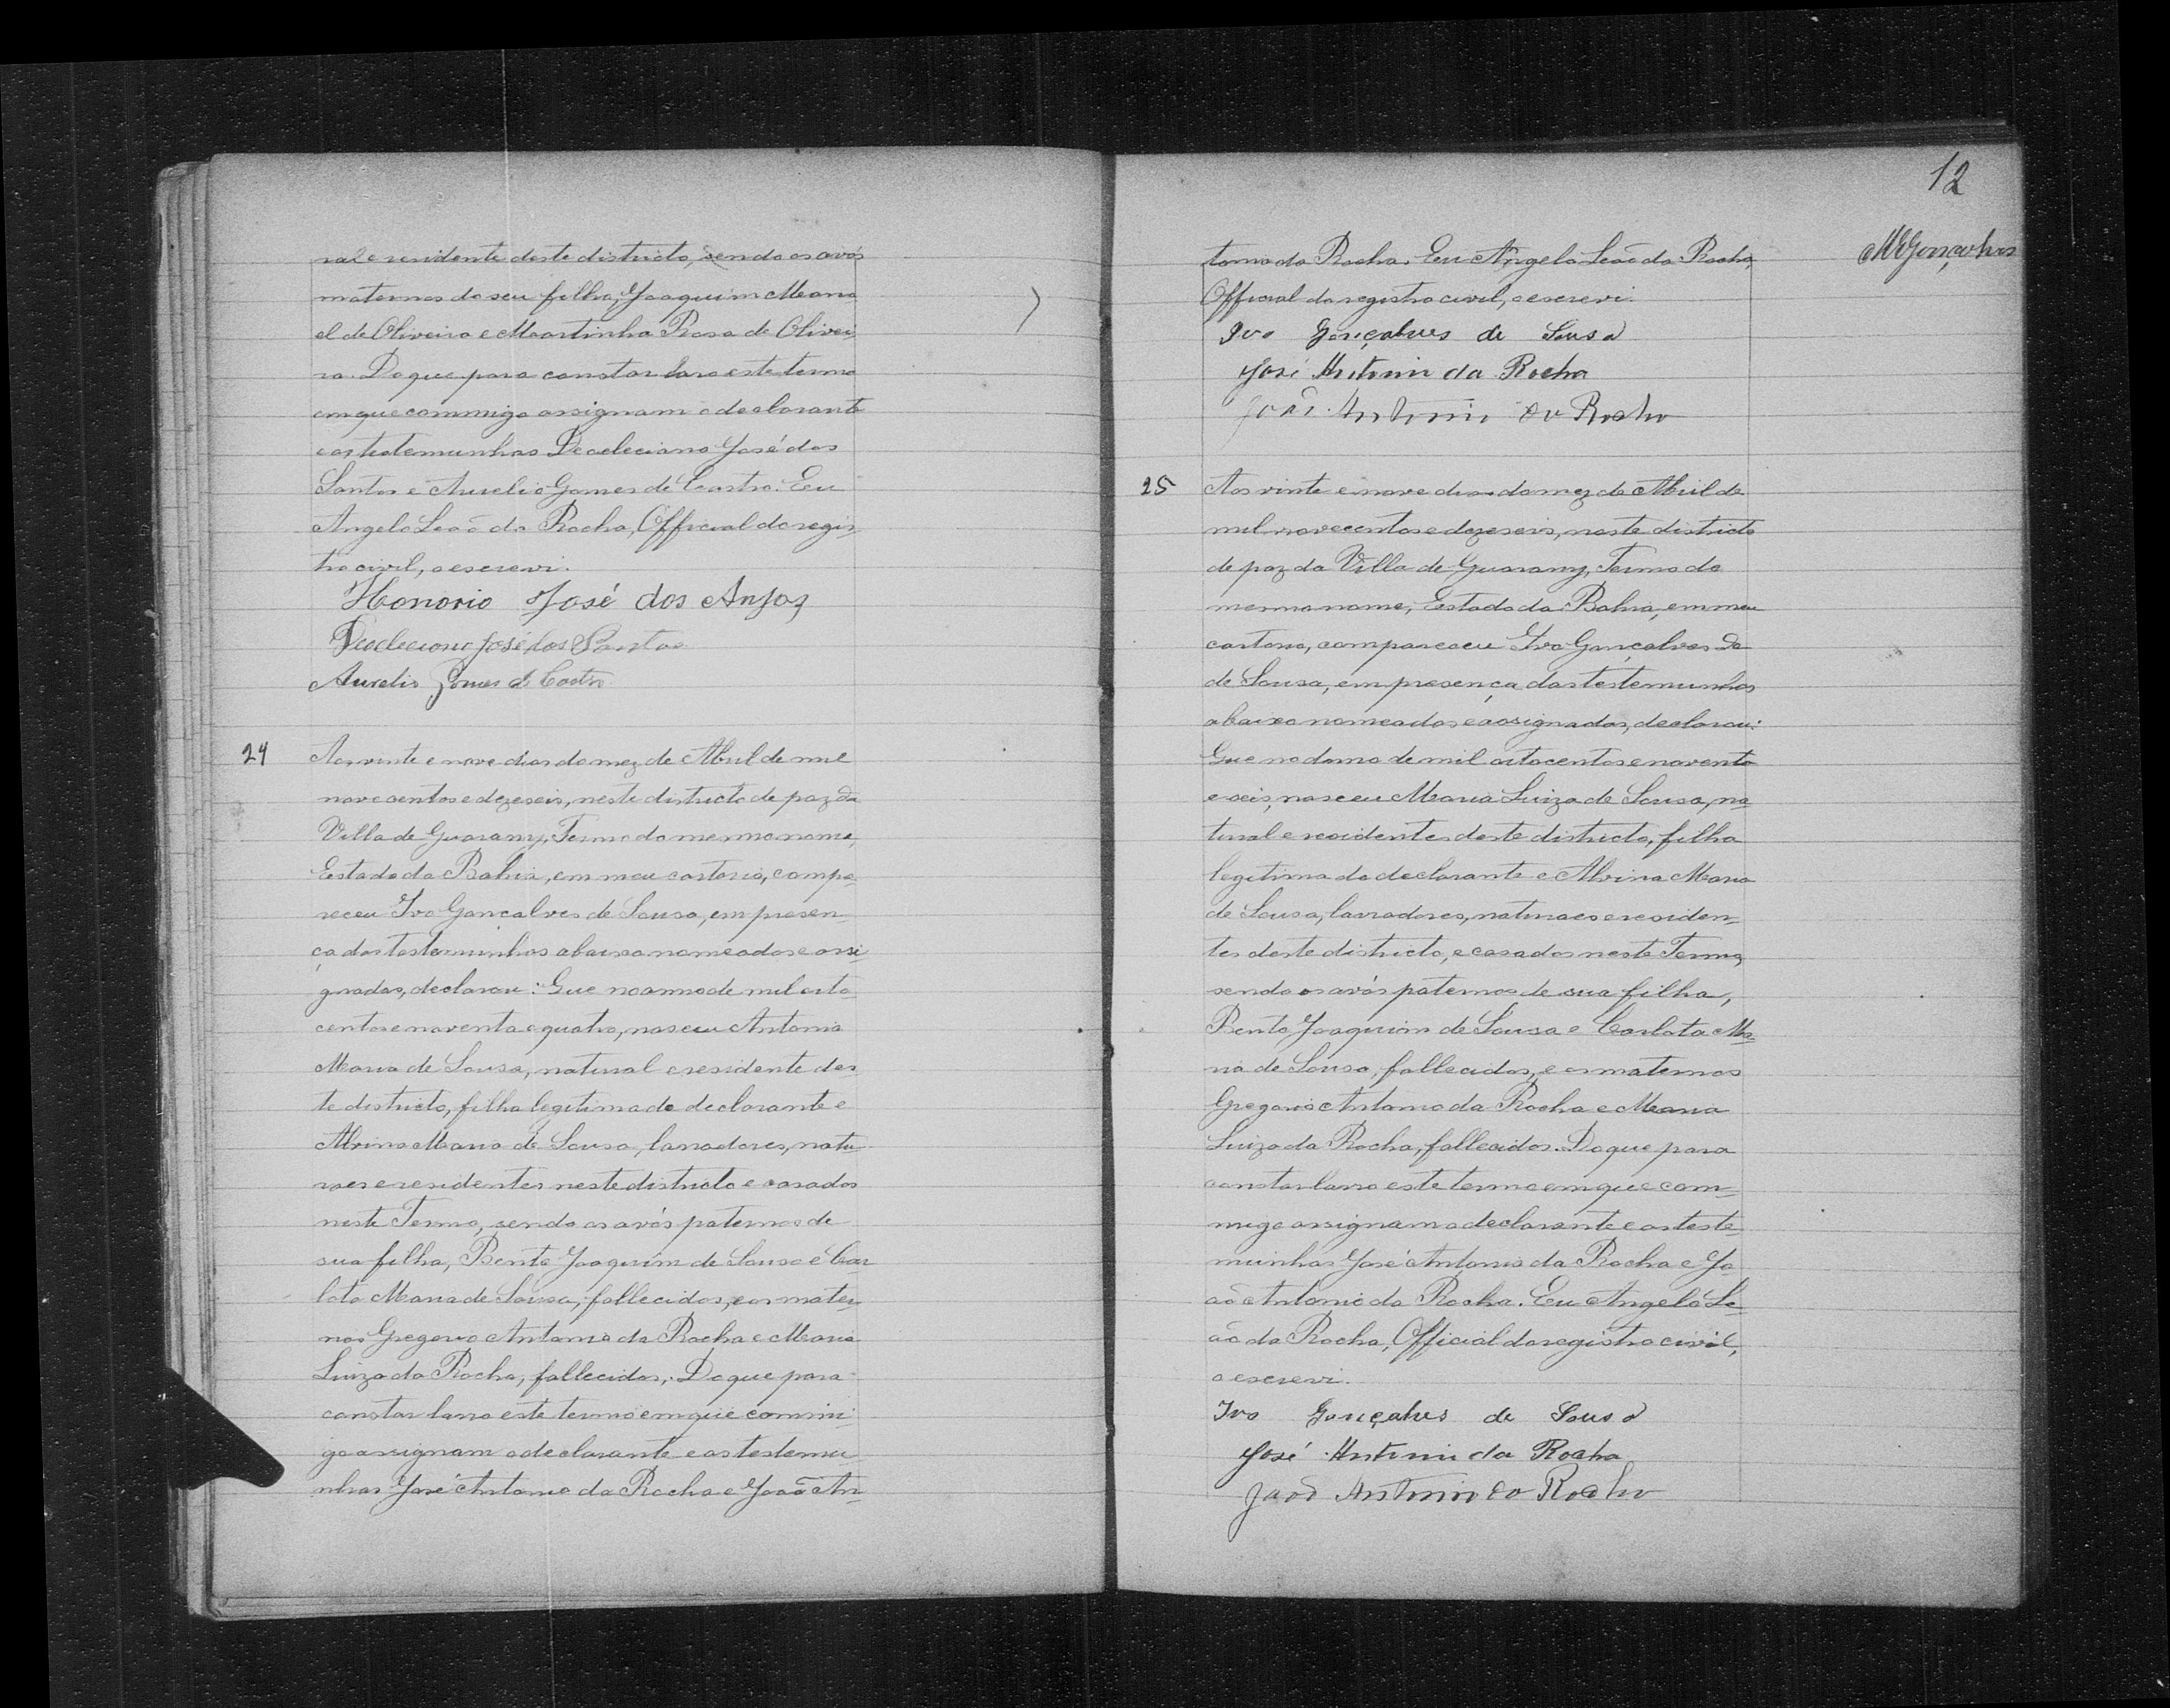 ral e residente deste districto, sendo os avós
maternos do seu filho, Joaquim Mano
el de Oliveira e Martinha Rosa de Olivei-
ra. Do que para constar lavro este termo
em que commigo assignam o declarante
e as testemunhas Deocleciano José dos
Santos e Aurelio Gomes de Castro. Eu
Angelo Leão da Rocha, Official do regis-
tro civil, o escrevi.
Honorio José dos Anjos
Deocleciano José dos Santos
Aurelio Gomes de Castro
24
Aos vinte e nove dias do mez de Abril de mil
nove centos e dezeseis, neste districto de paz da
Villa de Guarany, Termo do mesmo nome,
Estado da Bahia, em meu cartorio, compa-
receu Ivo Gonçalves de Sousa, em presen-
ça das testemunhas abaixo nomeados e assi-
gnadas, declarou: Que no anno de mil oito
centos e noventa e quatro, nasceu Antonia
Maria de Sousa, natural e residente des-
te districto, filha legitima do declarante e
Alvina Maria de Sousa, lavradores, natu-
raes e residentes neste districto e casados
neste Termo, sendo os avós paternos de
sua filha, Bento Joaquim de Sousa e Car
lota Maria de Sousa, fallecidos, e os mater-
nos Gregorio Antonio da Rocha e Maria
Luiza da Rocha, fallecidos. Do que para
constar lavro este termo em que commi-
go assignam o declarante e as testemu-
nhas José Antonio da Rocha e João An-
12
MGonçalves
tonio da Rocha. Eu Angelo Leão da Rocha,
Official do registro civil, o escrevi.
Ivo Gonçalves de Sousa
José Antonio da Rocha
João Antonio da Rocha
25
Aos vinte e nove dias do mez de Abril de
mil novecentos e dezeseis, neste districto
de paz da Villa de Guarany, Termo do
mesmo nome, Estado da Bahia, em meu
cartorio, compareceu Ivo Gonçalves de
de Sousa, em presença das testemunhas
abaixo nomeados e assignados, declarou:
Que no anno de mil oitocentos e noventa
e seis, nasceu Maria Luiza de Sousa, na-
tural e residentes deste districto, filha
legitima do declarante e Alvina Maria
de Sousa, lavradores, naturaes e residen-
tes deste districto, e casados neste Termo,
sendo os avós paternos de sua filha,
Bento Joaquim de Sousa e Carlota Ma-
ria de Sousa, fallecidos, e os maternos
Gregorio Antonio da Rocha e Maria
Luiza da Rocha, fallecidos. Do que para
constar lavro este termo em que com-
migo assignam o declarante e as teste-
munhas José Antonio da Rocha e Jo-
ão Antonio da Rocha. Eu Angelo Le-
ão da Rocha, Official do registro civil,
o escrevi.
Ivo Gonçalves de Sousa
José Antonio da Rocha
João Antonio da Rocha